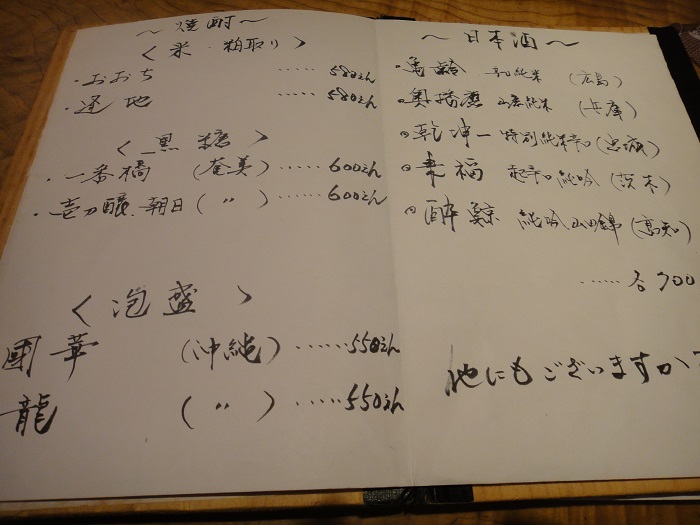 ～焼酎～
〈米・粕取り〉
・おおち ・・・・・ 580えん
・蓬地 ・・・・・ 580えん
〈黒糖〉
・一番橋 (奄美) ・・・・・ 600えん
・壱乃醸 朝日 ( 〃 ) ・・・・・ 600えん
〈泡盛〉
國華 (沖縄) ・・・・・ 550えん
龍 ( 〃 ) ・・・・・ 550えん
～日本酒～
亀齢 純米 (広島)
奥播磨 山廃純米 (兵庫)
乾坤一 特別純米辛口 (宮城)
来福 超辛口 純吟 (茨木)
酔鯨 純吟 山田錦 (高知)
・・・・・ 各700
他にもございますが